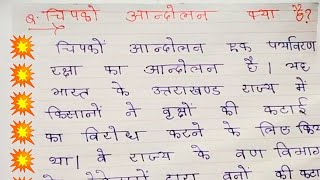 प्र. चिपको आन्दोलन क्या है?
चिपकों आन्दोलन एक पर्यावरण
रक्षा का आन्दोलन है। यह
भारत के उत्तराखण्ड राज्य में
किसानों ने वृक्षों की कटाई
का विरोध करने के लिए किया
था। वे राज्य के वण विभाग
द्वारा वनों की कटा